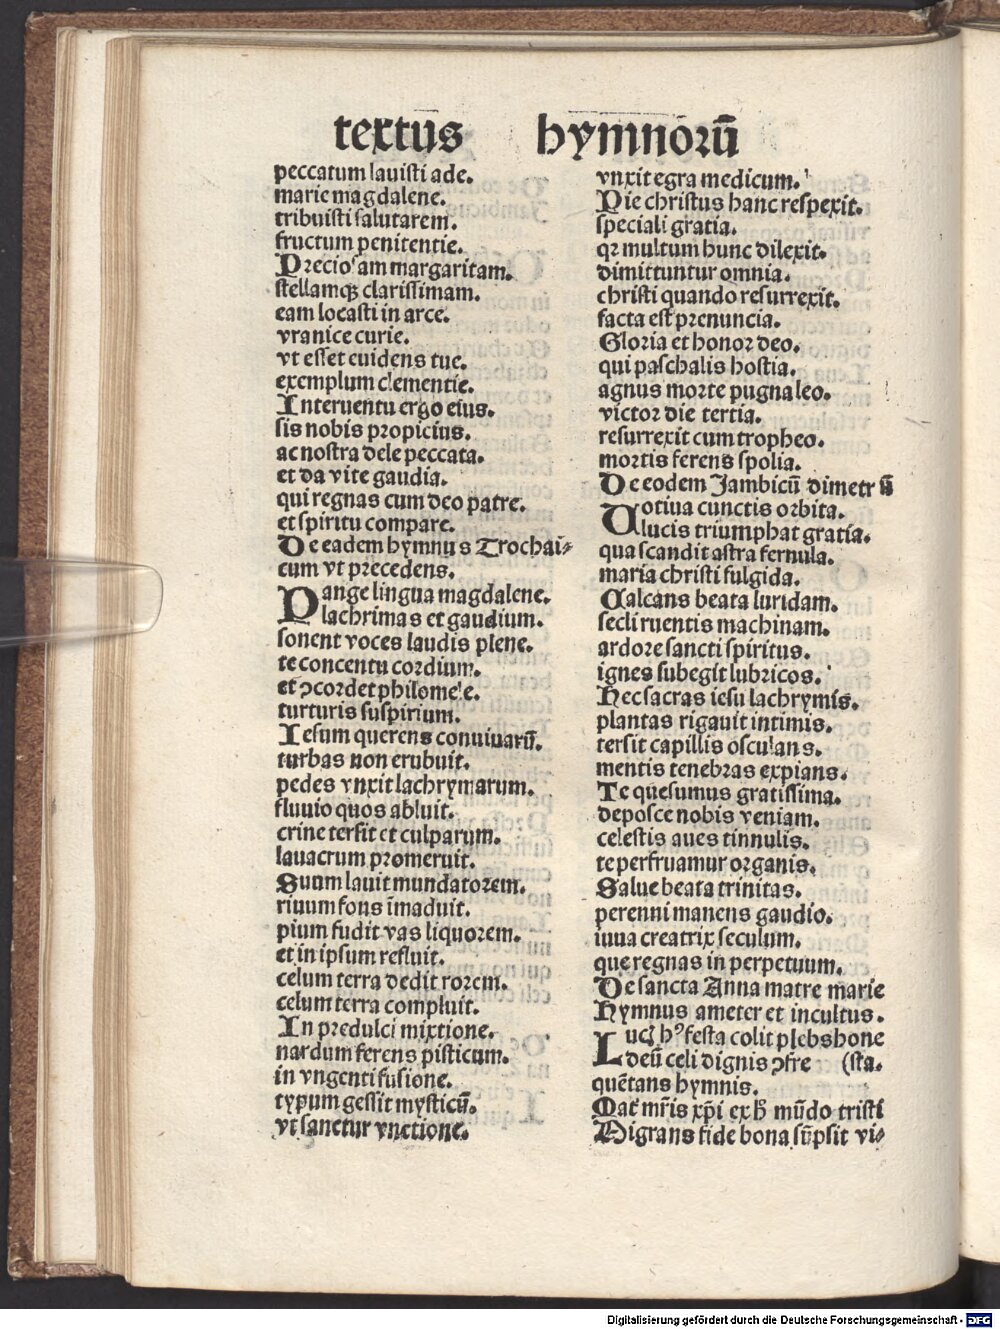 textus hymnorū
peccatum lauisti ade.
marie magdalene.
tribuisti salutarem.
fructum penitentie.
Preciosam margaritam.
stellamqꝫ clarissimam.
eam locasti in arce.
vranice curie.
vt esset euidens tue.
exemplum clementie.
Interuentu ergo eius.
sis nobis propicius.
ac nostra dele peccata.
et da vite gaudia.
qui regnas cum deo patre.
et spiritu compare.
De eadem hymnus Trochai⸗
cum vt precedens.
Pange lingua magdalene.
lachrimas et gaudium.
sonent voces laudis plene.
te concentu cordium.
et ꝯcordet philomele.
turturis suspirium.
Iesum querens conuiuarū.
turbas non erubuit.
pedes vnxit lachrymarum.
fluuio quos abluit.
crine tersit et culparum.
lauacrum promeruit.
Suum lauit mundatorem.
riuum fons īmaduit.
pium fudit vas liquorem.
et in ipsum refluit.
celum terra dedit rorem.
celum terra compluit.
In predulci mixtione.
nardum ferens pisticum.
in vngenti fusione.
typum gessit mysticū.
vt sanetur vnctione.
vnxit egra medicum.
Pie christus hanc respexit.
speciali gratia.
qꝛ multum hunc dilexit.
dimittuntur omnia.
christi quando resurrexit.
facta est prenuncia.
Gloria et honor deo.
qui paschalis hostia.
agnus morte pugna leo.
victor die tertia.
resurrexit cum tropheo.
mortis ferens spolia.
De eodem Jambicū dimetrū
Uotiua cunctis orbita.
lucis triumphat gratia.
qua scandit astra fernula.
maria christi fulgida.
Calcans beata luridam.
secli ruentis machinam.
ardore sancti spiritus.
ignes subegit lubricos.
Hec sacras iesu lachrymis.
plantas rigauit intimis.
tersit capillis osculans.
mentis tenebras expians.
Te quesumus gratissima.
deposce nobis veniam.
celestis aues tinnulis.
te perfruamur organis.
Salue beata trinitas.
perenni manens gaudio.
iuua creatrix seculum.
que regnas in perpetuum.
De sancta Anna matre marie
Hymnus ameter et incultus.
Lucꝫ hꝰ festa colit plebs hone
deū celi dignis ꝯfre (sta.
quētans hymnis.
Mat͛ mr̄is xp̄i ex mūdo tristi
Migrans fide bona sūpsit vi⸗
Digitalisierung gefördert durch die Deutsche Forschungsgemeinschaft - DFG